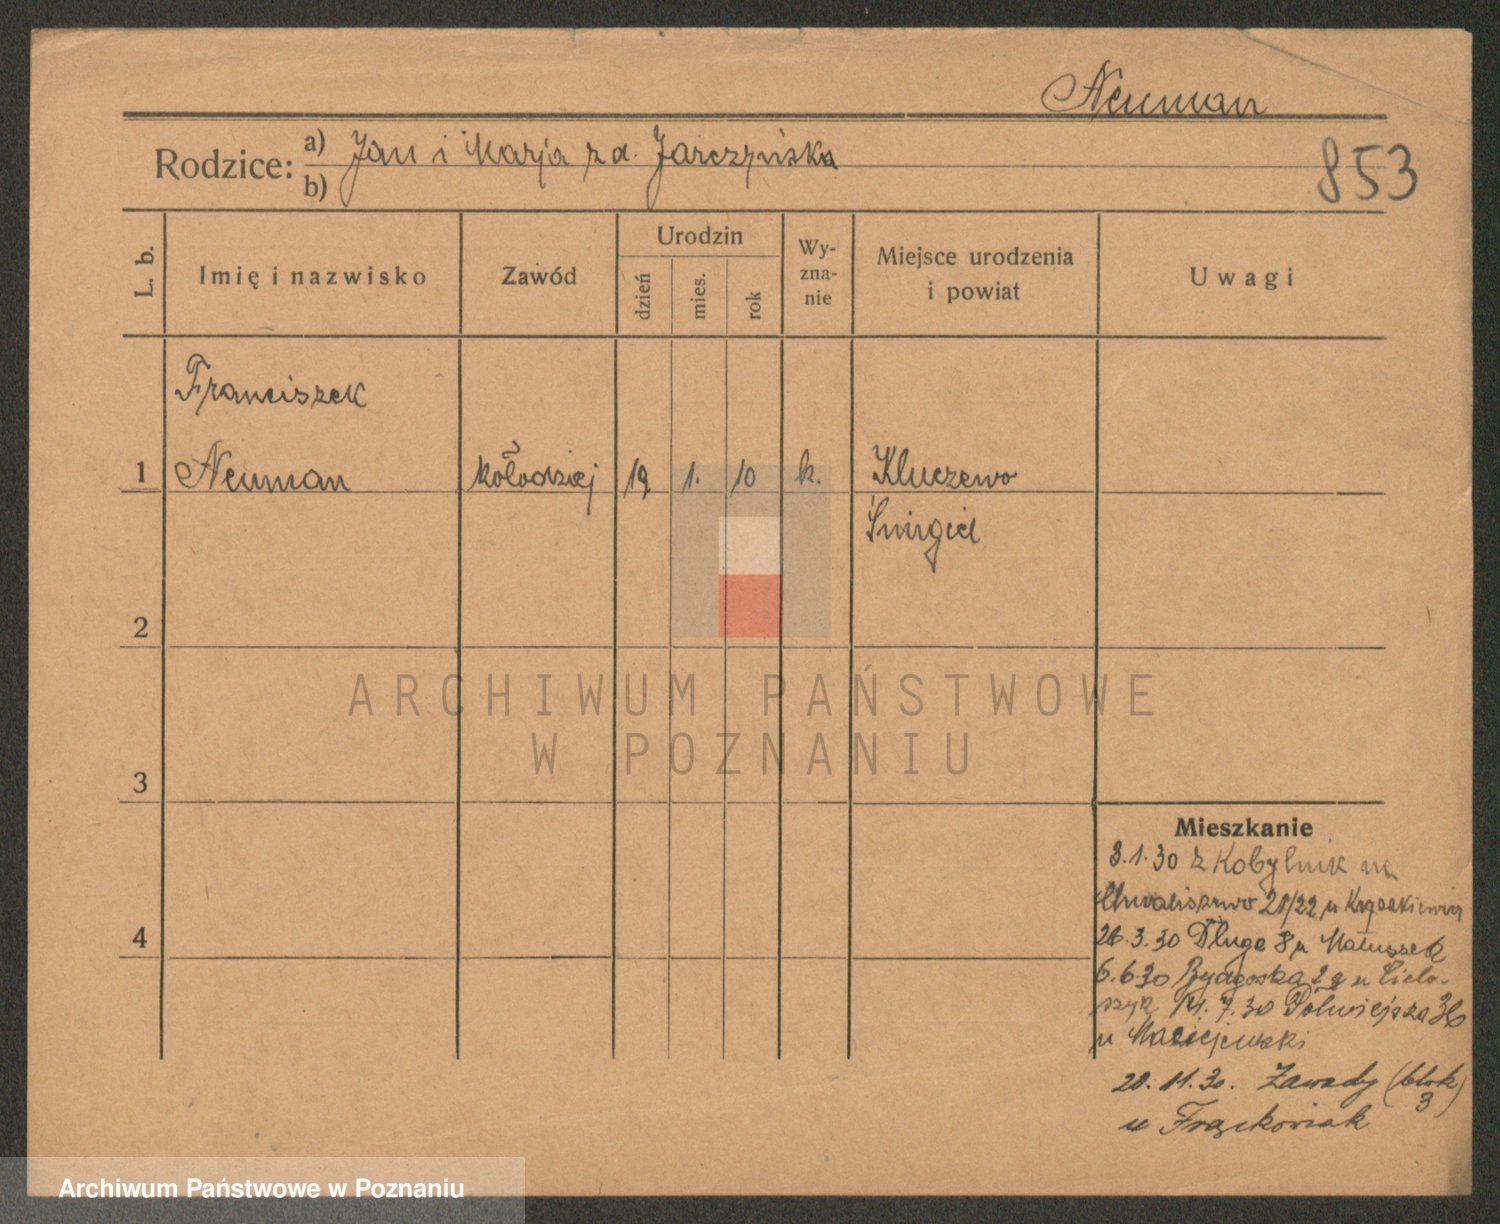 Neuman
Rodzice: a) Jan i Marja z d. Jarczyńska
b)
853
L. b.
Imię i nazwisko
Zawód
Urodzin
dzień
mies.
rok
Wy-
zna-
nie
Miejsce urodzenia
i powiat
Uwagi
Franciszek
1 Neuman kołodziej 19 1. 10 k. Kluczewo
Śmigiel
2
ARCHIWUM PAŃSTWOWE
W POZNANIU
3
Mieszkanie
3.1.30 z Kobylnik na
Chwaliszewo 21/22 u
4
26.3.30 Długa 8 u Matuszak
6.6.30 Bydgoska u Cielo-
szyk 14.7.30 Półwiejska 36
u Maciejewski
20.11.30. Zawady (blok
3)
u Frąckowiak
Archiwum Państwowe w Poznaniu